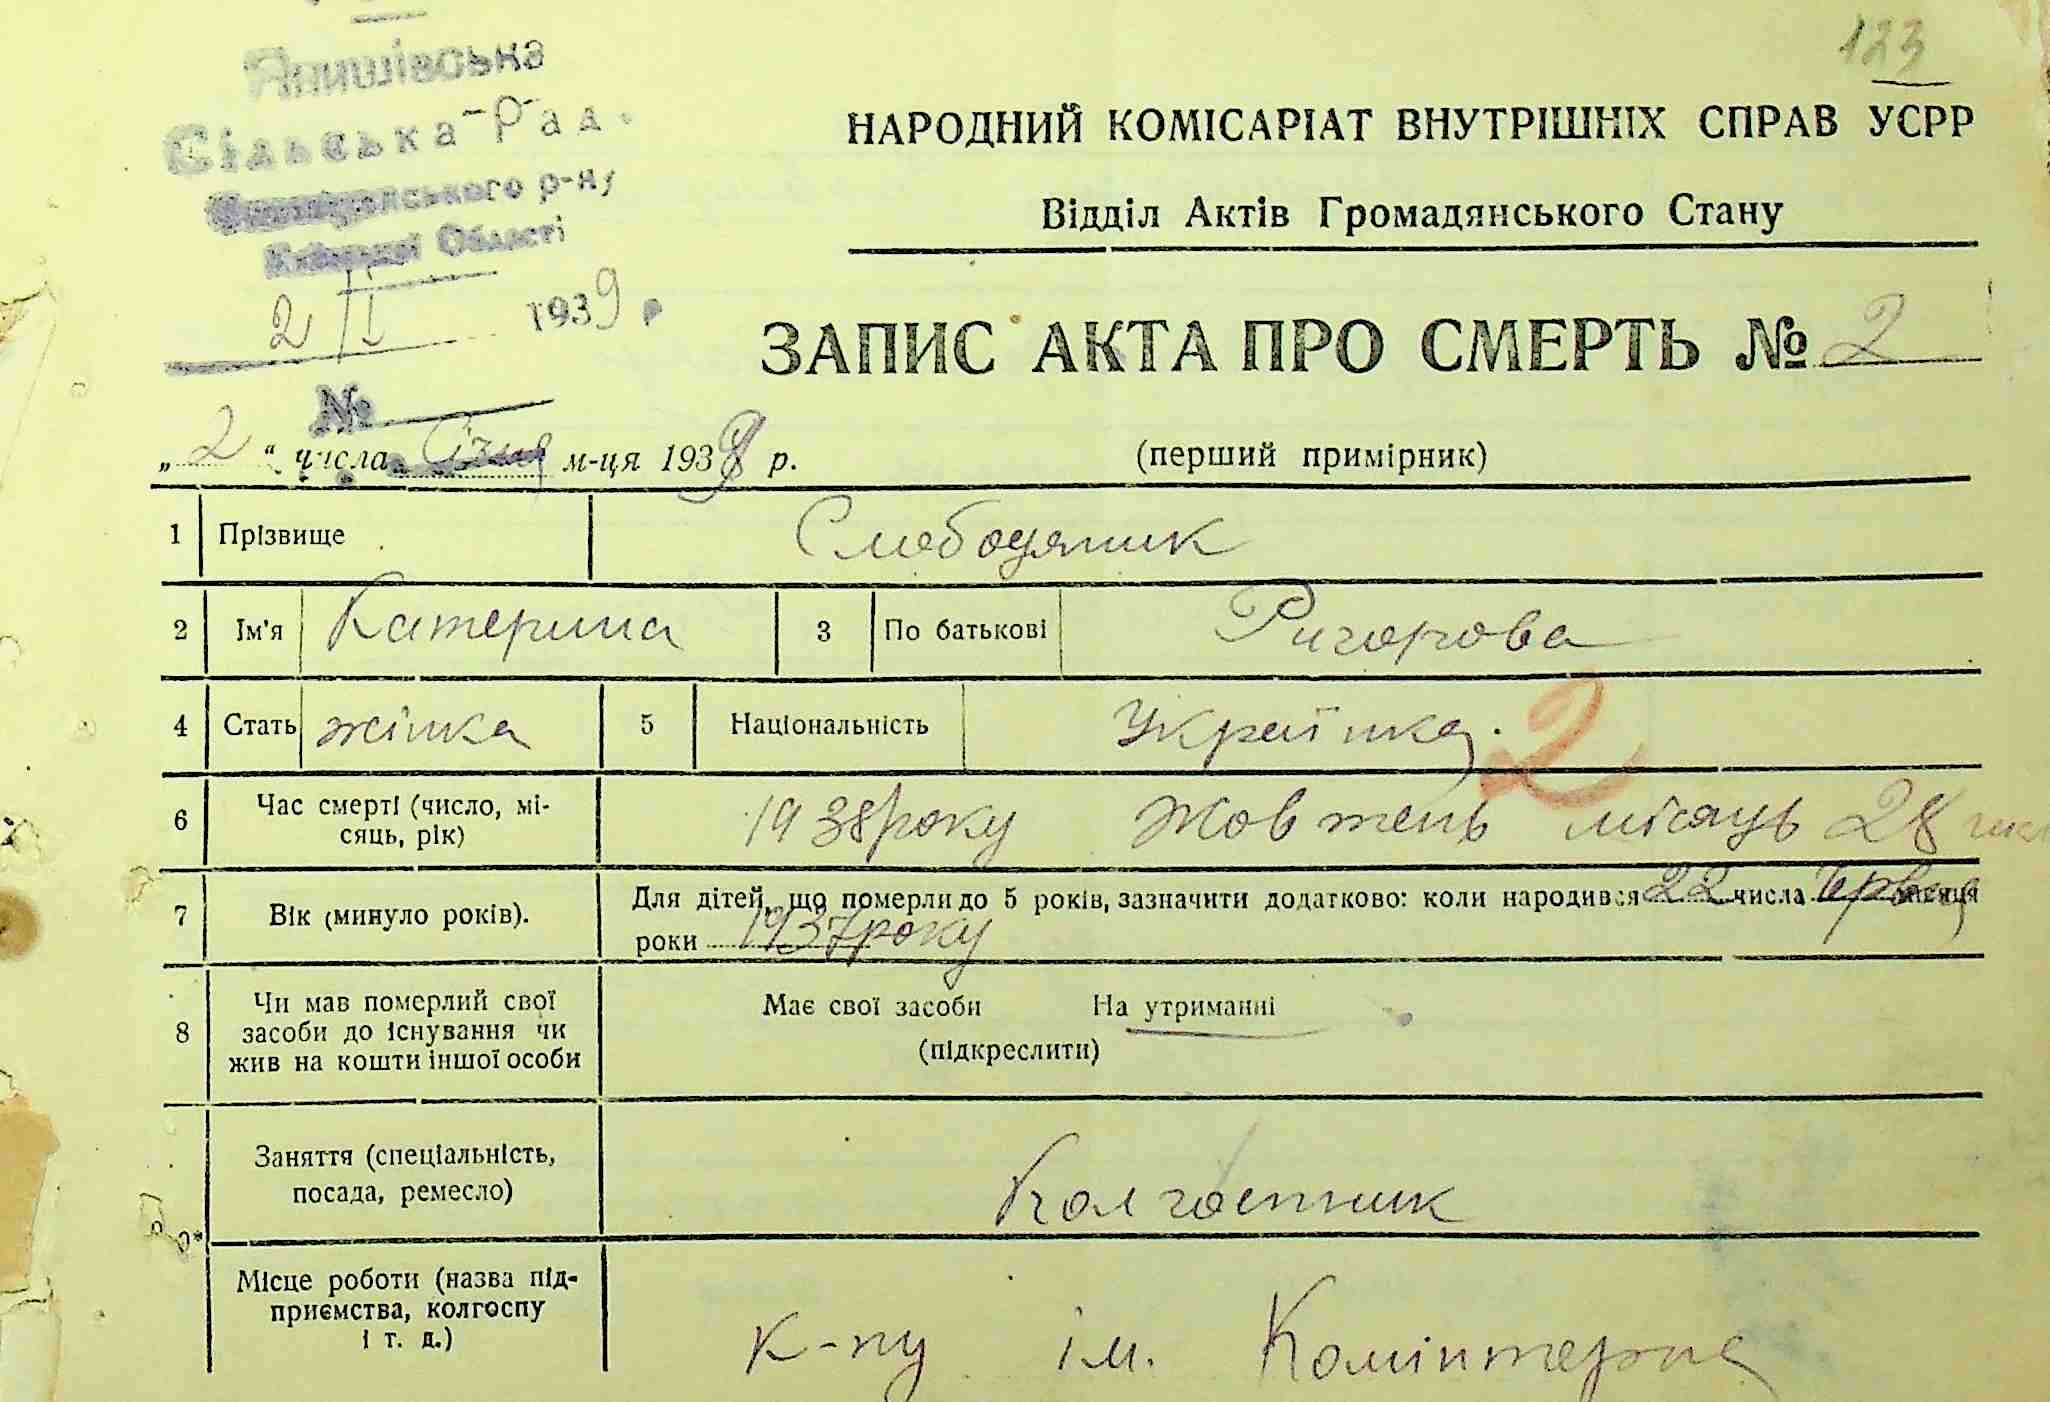 123
Сільська Рад.
р-ну
Київської Області
2/I 1939 р
№
НАРОДНИЙ КОМІСАРІАТ ВНУТРІШНІХ СПРАВ УСРР
Відділ Актів Громадянського Стану
ЗАПИС АКТА ПРО СМЕРТЬ № 2
„2“ числа Січня м-ця 1939 р.
(перший примірник)
1 Прізвище Слободяник
2 Ім'я Катерина 3 По батькові Ригорова
4 Стать жінка 5 Національність Українка. 2
6 Час смерті (число, мі-
сяць, рік) 1938 року Жовтень місяць 28
7 Вік (минуло років). Для дітей, що померли до 5 років, зазначити додатково: коли народився 22 числа Червня місяця
роки 1937 року
8 Чи мав померлий свої
засоби до існування чи
жив на кошти іншої особи
Має свої засоби На утриманні
(підкреслити)
Заняття (спеціальність,
посада, ремесло) Колгосник
9*
Місце роботи (назва під-
приємства, колгоспу
і т. д.) к-пу ім. Комінтерна